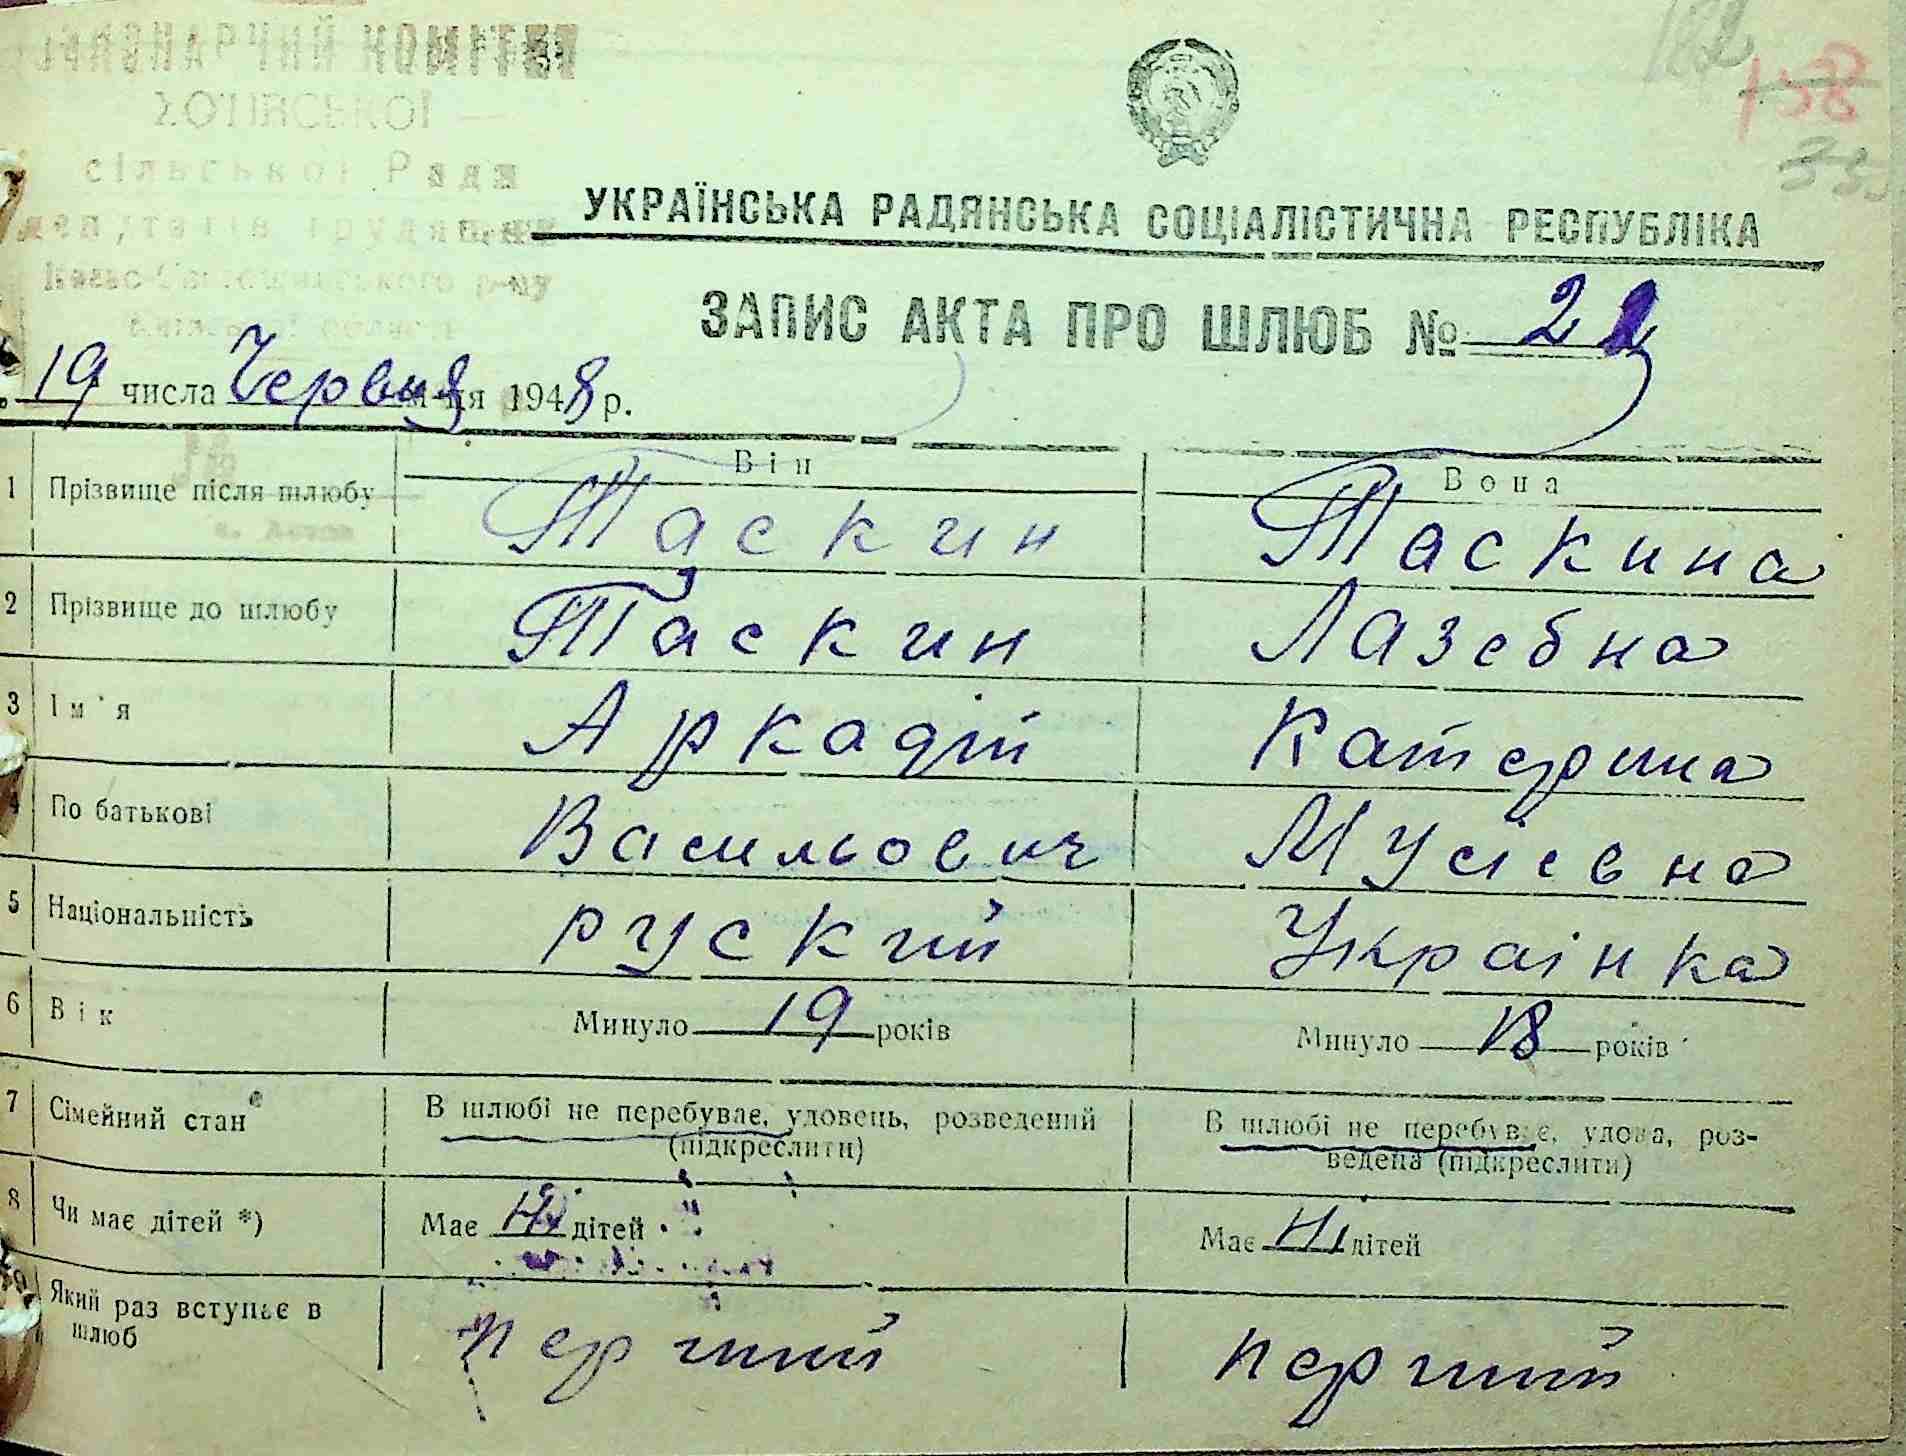 КОМІТЕТ
ХОТІВСЬКОЇ
сільської Ради
депутатів трудящих
Києво-Святошинського р-ну
Київської області
УКРАЇНСЬКА РАДЯНСЬКА СОЦІАЛІСТИЧНА РЕСПУБЛІКА
ЗАПИС АКТА ПРО ШЛЮБ № 22
19 числа Червня м-ця 1948 р.
Він Вона
1 Прізвище після шлюбу Таскин Таскина
2 Прізвище до шлюбу Таскин Лазебна
3 Ім'я Аркадій Катерина
4 По батькові Васильович Мусієвна
5 Національність руский Украінка
6 Вік Минуло 19 років Минуло 18 років
7 Сімейний стан В шлюбі не перебуває, удовець, розведений (підкреслити) В шлюбі не перебуває, удова, розведена (підкреслити)
8 Чи має дітей *) Має Ні дітей Має Ні дітей
Який раз вступає в шлюб перший перший